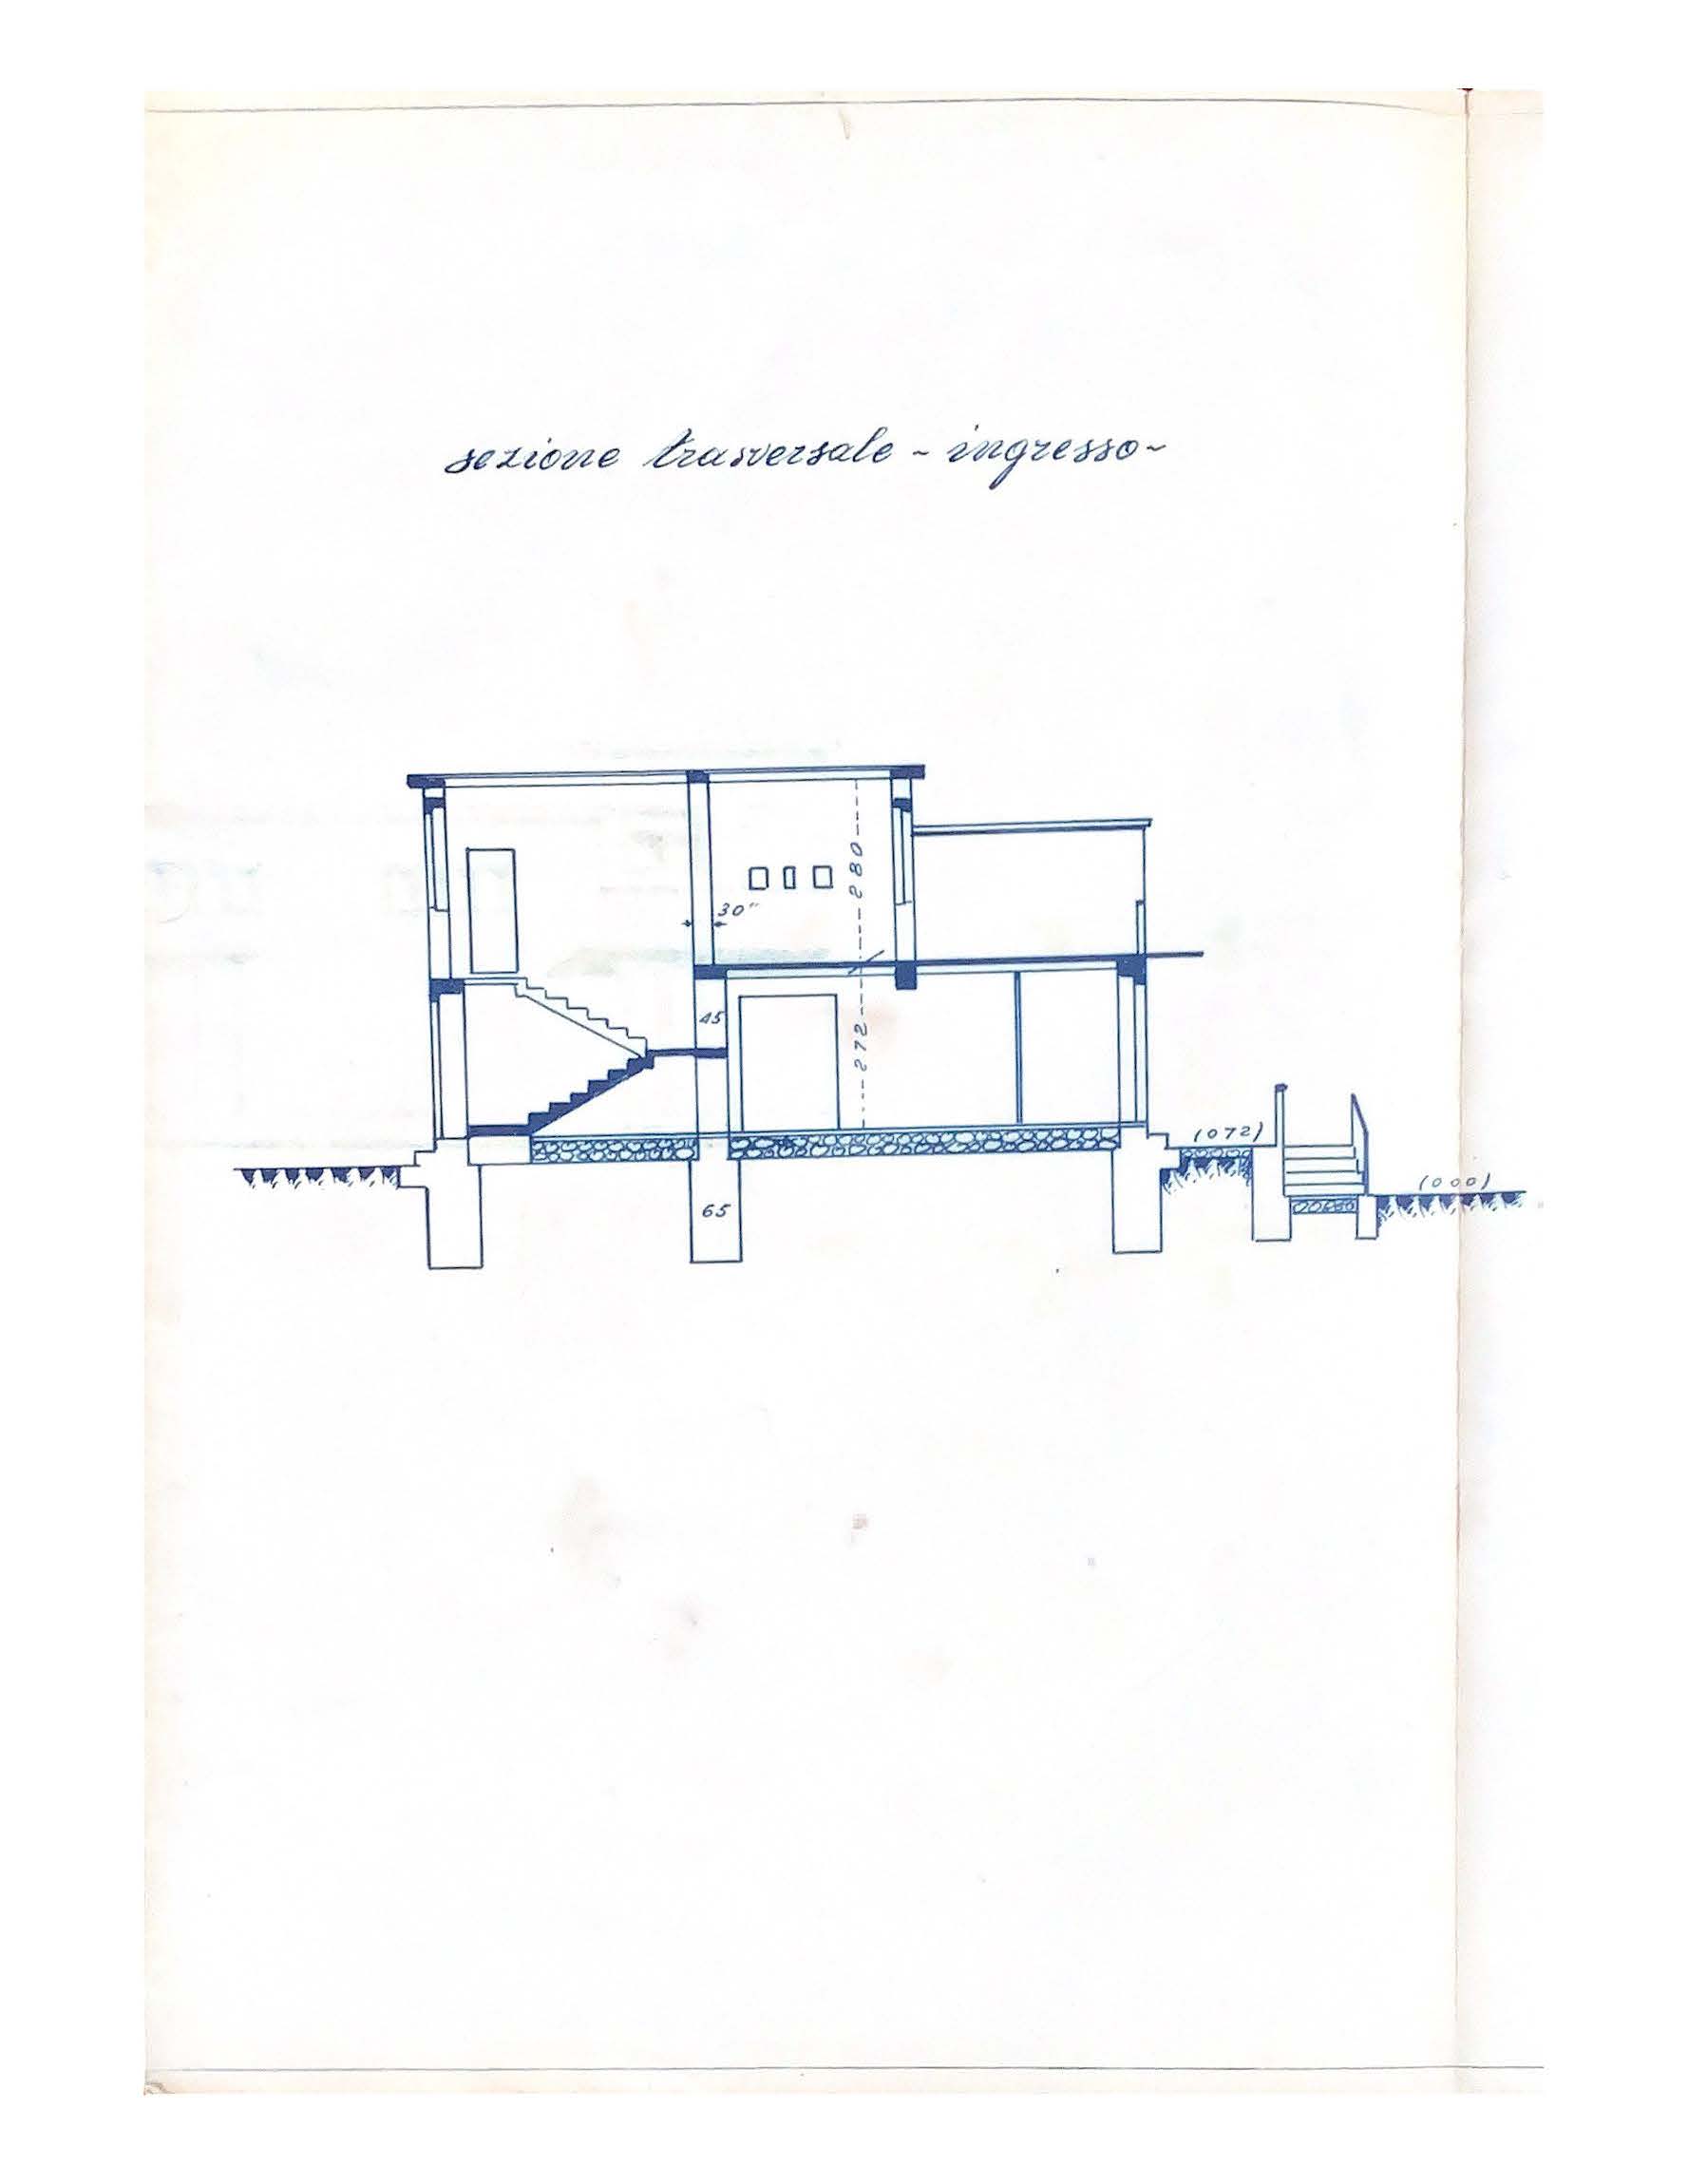 sezione trasversale ~ ingresso ~
280
30"
45
272
(072)
(000)
65